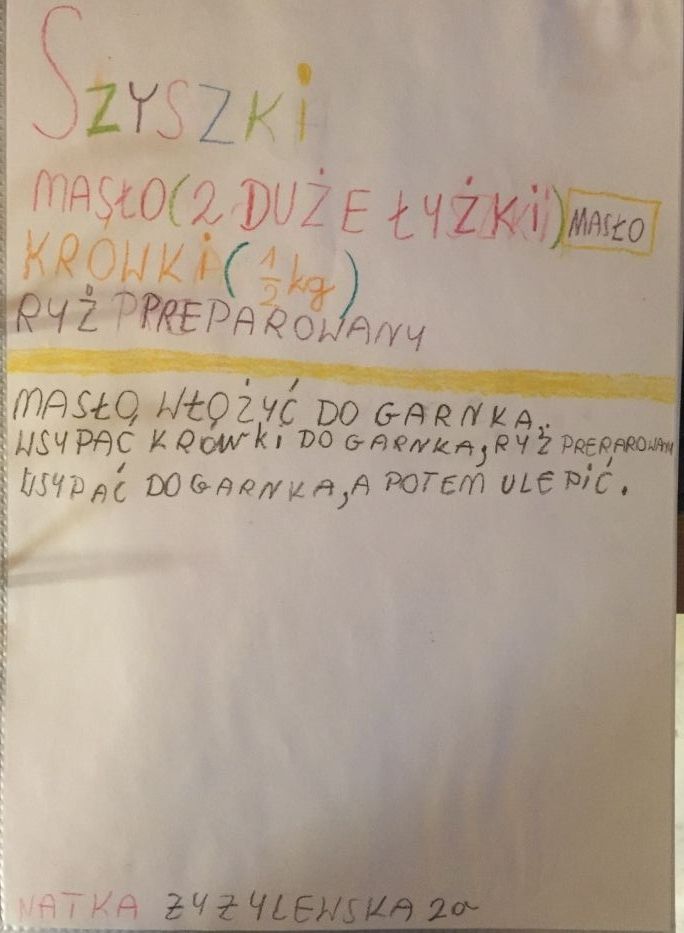 SZYSZKI
MASŁO (2 DUŻE ŁYŻKI) MASŁO
KRÓWKI (1/2 kg)
RYŻ PPREPAROWANY
MASŁO WŁOŻYĆ DO GARNKA.
WSYPAĆ KRÓWKI DO GARNKA, RYŻ PREPAROWANY
WSYPAĆ DO GARNKA, A POTEM ULEPIĆ.
NATKA ZYZYLEWSKA 2a